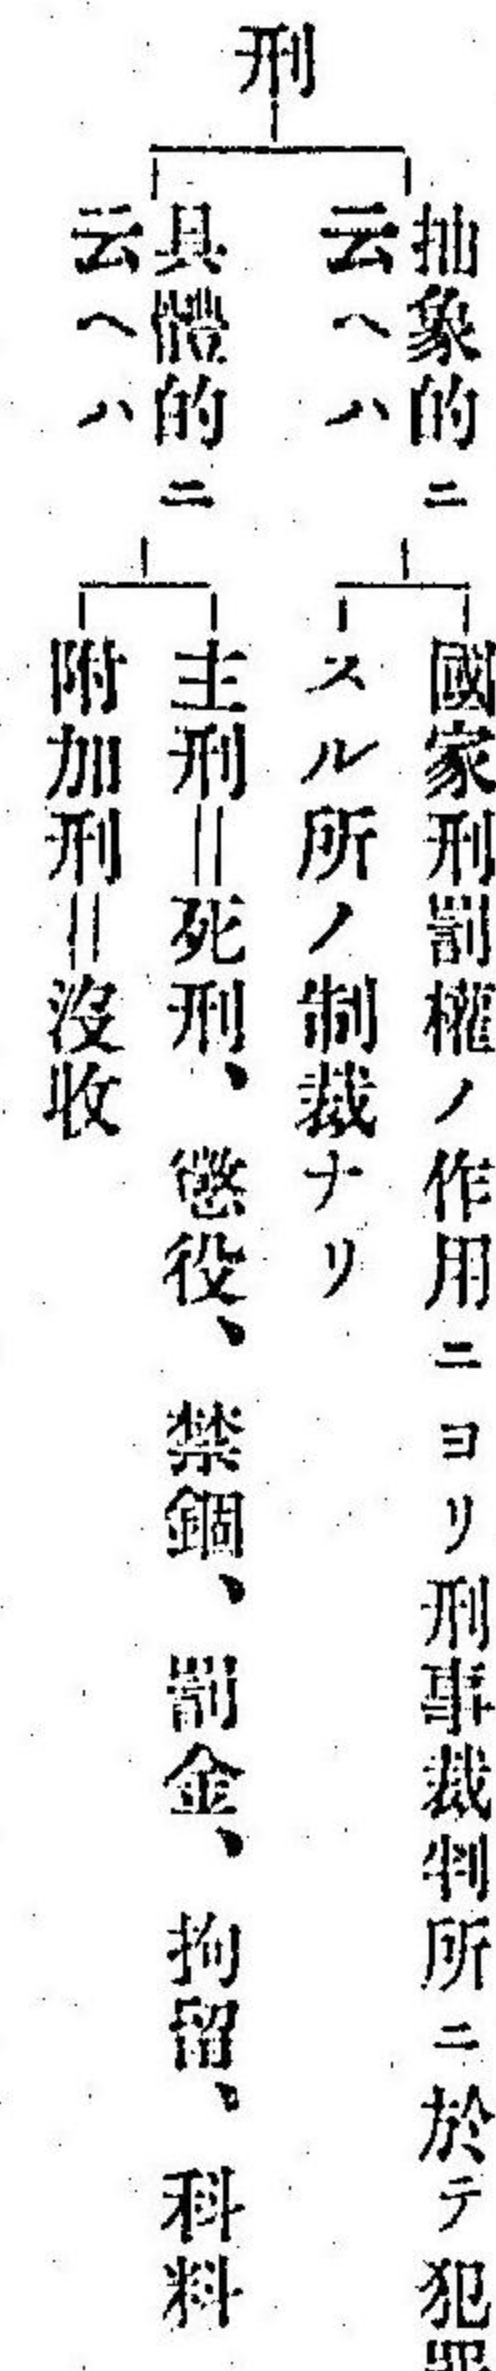 刑
抽象的ニ
云ヘハ
國家刑罰權ノ作用ニヨリ刑事裁判所ニ於テ犯罪
スル所ノ制裁ナリ
具體的ニ
云ヘハ
主刑＝死刑、懲役、禁錮、罰金、拘留、科料
附加刑＝沒收